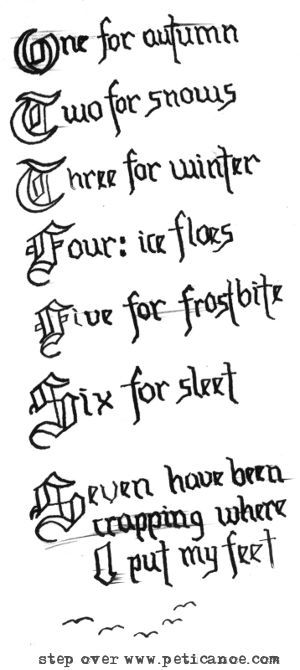 One for autumn
Two for snows
Three for winter
Four: ice floes
Five for frostbite
Six for sleet
Seven have been
crapping where
I put my feet
step over www.peticanoe.com